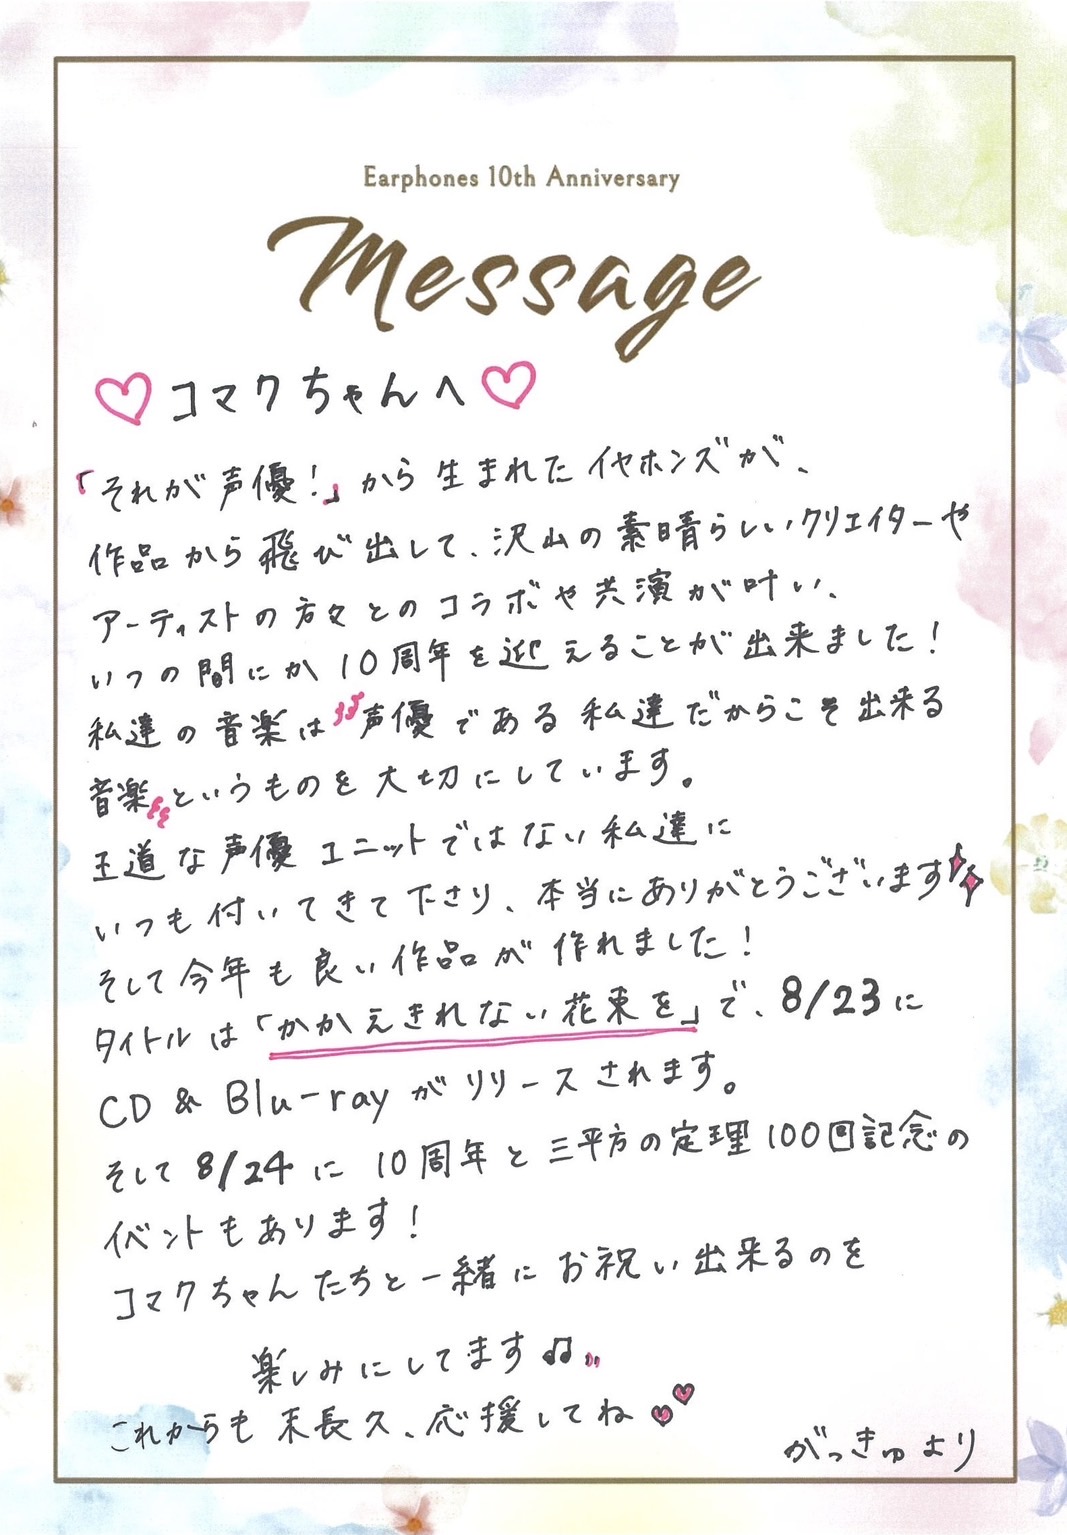 Earphones 10th Anniversary
Message
♡コマクちゃんへ♡
「それが声優！」から生まれたイヤホンズが、
作品から飛び出して、沢山の素晴らしいクリエイターや
アーティストの方々とのコラボや共演が叶い、
いつの間にか10周年を迎えることが出来ました！
私達の音楽は〝声優である私達だからこそ出来る
音楽〟というものを大切にしています。
王道な声優ユニットではない私達に
いつも付いてきて下さり、本当にありがとうございます
そして今年も良い作品が作れました！
タイトルは「かかえきれない花束を」で、8/23に
CD & Blu-rayがリリースされます。
そして8/24に10周年と三平方の定理100回記念の
イベントもあります！
コマクちゃんたちと一緒にお祝い出来るのを
楽しみにしてます♫
これからも末長久、応援してね
がっきゅより